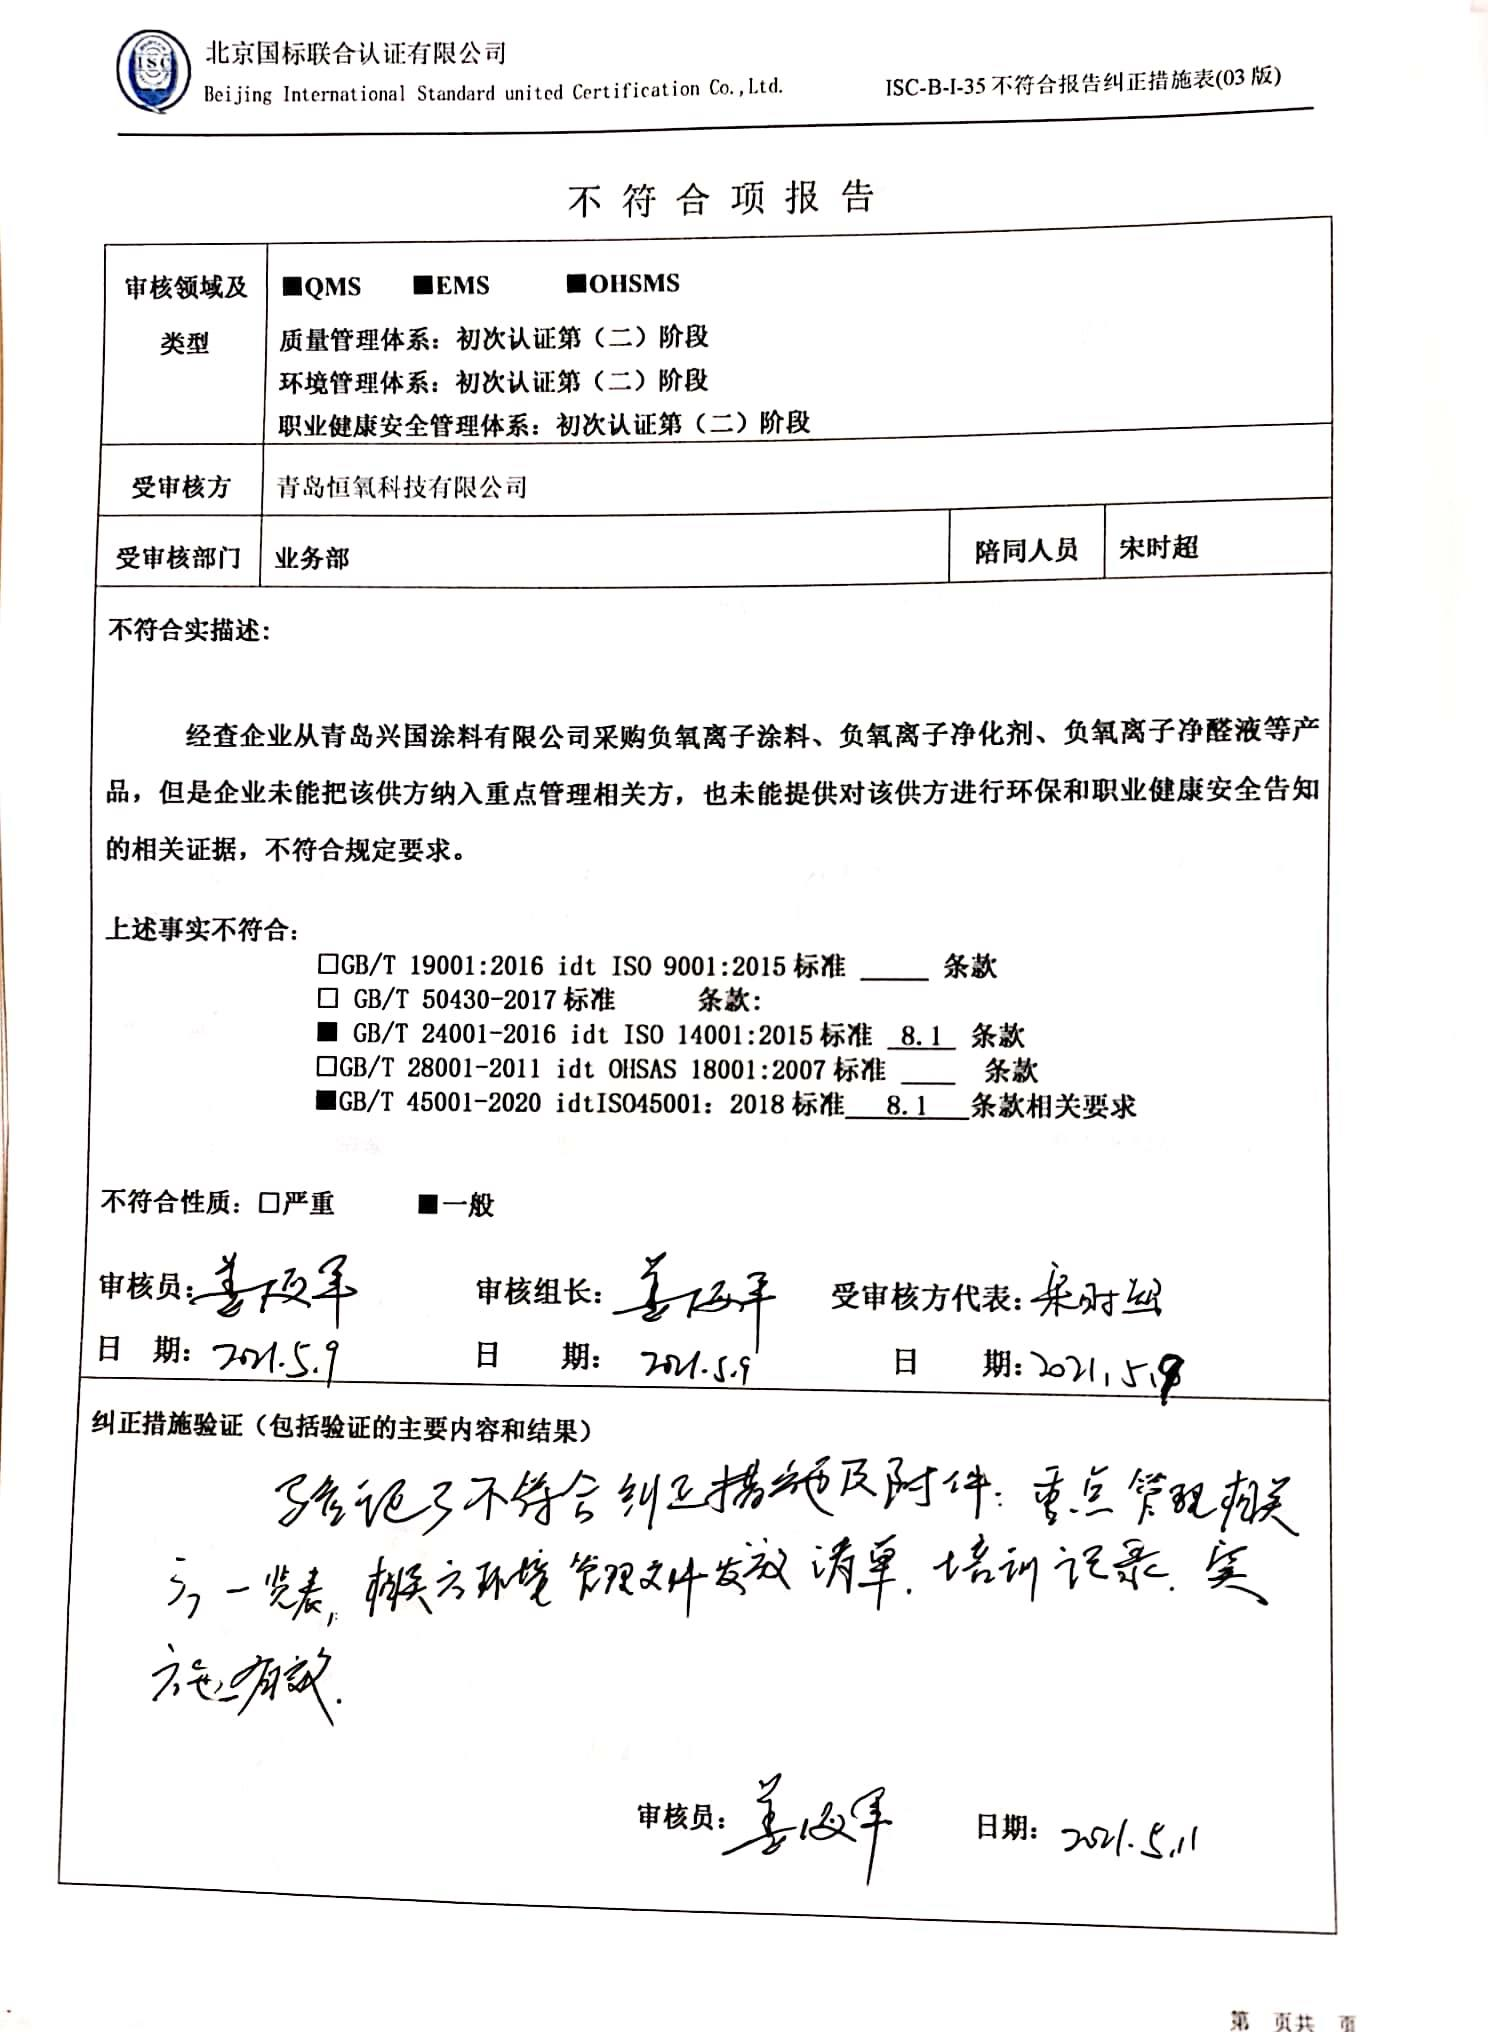 ISC
北京国标联合认证有限公司
Beijing International Standard united Certification Co.,Ltd.
ISC-B-I-35 不符合报告纠正措施表(03 版)
不符合项报告
审核领域及类型
■QMS ■EMS ■OHSMS
质量管理体系：初次认证第（二）阶段
环境管理体系：初次认证第（二）阶段
职业健康安全管理体系：初次认证第（二）阶段
受审核方 青岛恒氧科技有限公司
受审核部门 业务部 陪同人员 宋时超
不符合实描述：
经查企业从青岛兴国涂料有限公司采购负氧离子涂料、负氧离子净化剂、负氧离子净醛液等产
品，但是企业未能把该供方纳入重点管理相关方，也未能提供对该供方进行环保和职业健康安全告知
的相关证据，不符合规定要求。
上述事实不符合：
□GB/T 19001:2016 idt ISO 9001:2015 标准 _____ 条款
□ GB/T 50430-2017 标准 条款：
■ GB/T 24001-2016 idt ISO 14001:2015 标准 8.1 条款
□GB/T 28001-2011 idt OHSAS 18001:2007 标准 ____ 条款
■GB/T 45001-2020 idtISO45001：2018 标准 8.1 条款相关要求
不符合性质：□严重 ■一般
审核员： 审核组长： 受审核方代表：宋时超
日 期：2021.5.9 日 期：2021.5.9 日 期：2021.5.9
纠正措施验证（包括验证的主要内容和结果）
验证了不符合纠正措施及附件：重点管理相关
方一览表，相关方环境管理文件发放清单，培训记录，实
施有效.
审核员： 日期：2021.5.11
第 页共 页